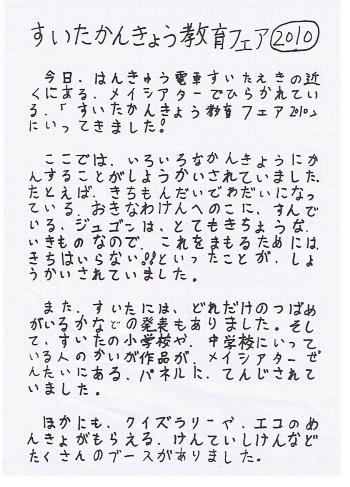 すいたかんきょう教育フェア 2010
今日、はんきゅう電車すいたえきの近
くにある、メイシアターでひらかれてい
る、「すいたかんきょう教育フェア2010」
にいってきました!
ここでは、いろいろなかんきょうにか
んすることがしょうかいされていました。
たとえば、きちもんだいでわだいになっ
ている、おきなわけんへのこに、すんで
いる、ジュゴンは、とてもきちょうな、
いきものなので、これをまもるためには、
きちはいらない!!といったことが、しょ
うかいされていました。
また、すいたには、どれだけのつばめ
がいるかなどの発表もありました。そし
て、すいたの小学校や、中学校にいって
いる人のかいが作品が、メイシアターぜ
んたいにある、パネルに、てんじされて
いました。
ほかにも、クイズラリーや、エコのめ
んきょがもらえる、けんていしけんなど
たくさんのブースがありました。